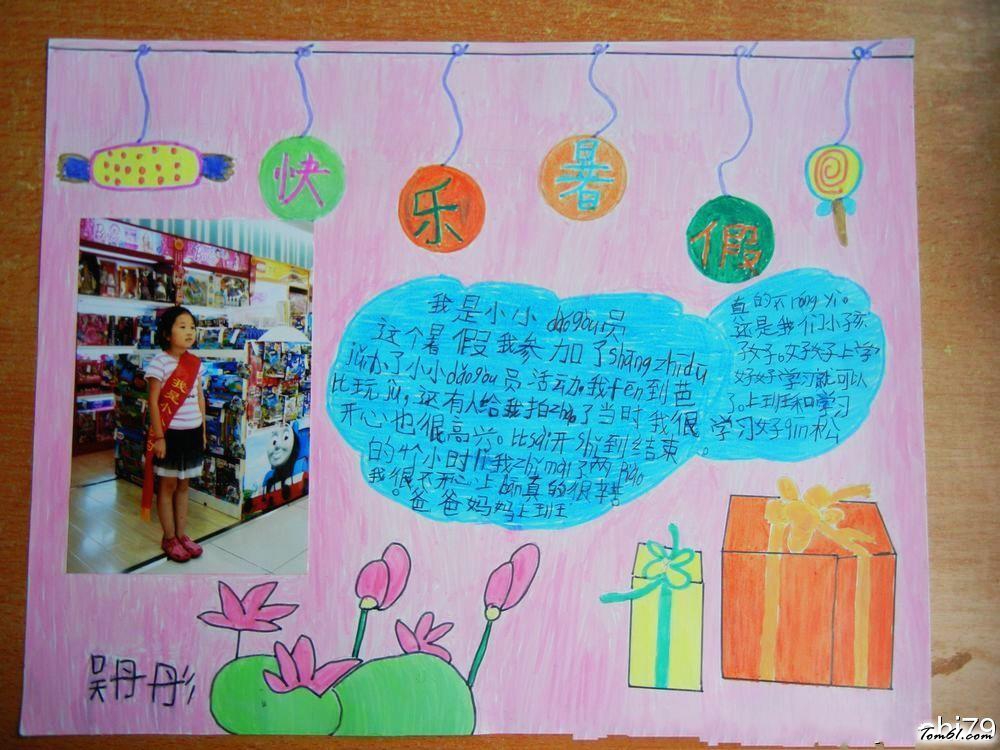 快
乐
暑
假
我是小小dǎogòu员
这个暑假我参加了shāngzhīdū
jǔ办了小小dǎogòu员活动。我fēn到芭
比玩jù,还有人给我拍zhào了当时我很
开心也很高兴。比sài开shǐ到结束
的4个小时lǐ我zhǐmài了两bāo
我很不开心上bān真的很辛苦
。爸爸妈妈上班
真的不róng yì。
还是我们小孩
子好。好孩子上学
好好学习就可以
了。上班和学习
学习好qīn松
。
我是小
吴丹彤
Tom61.com